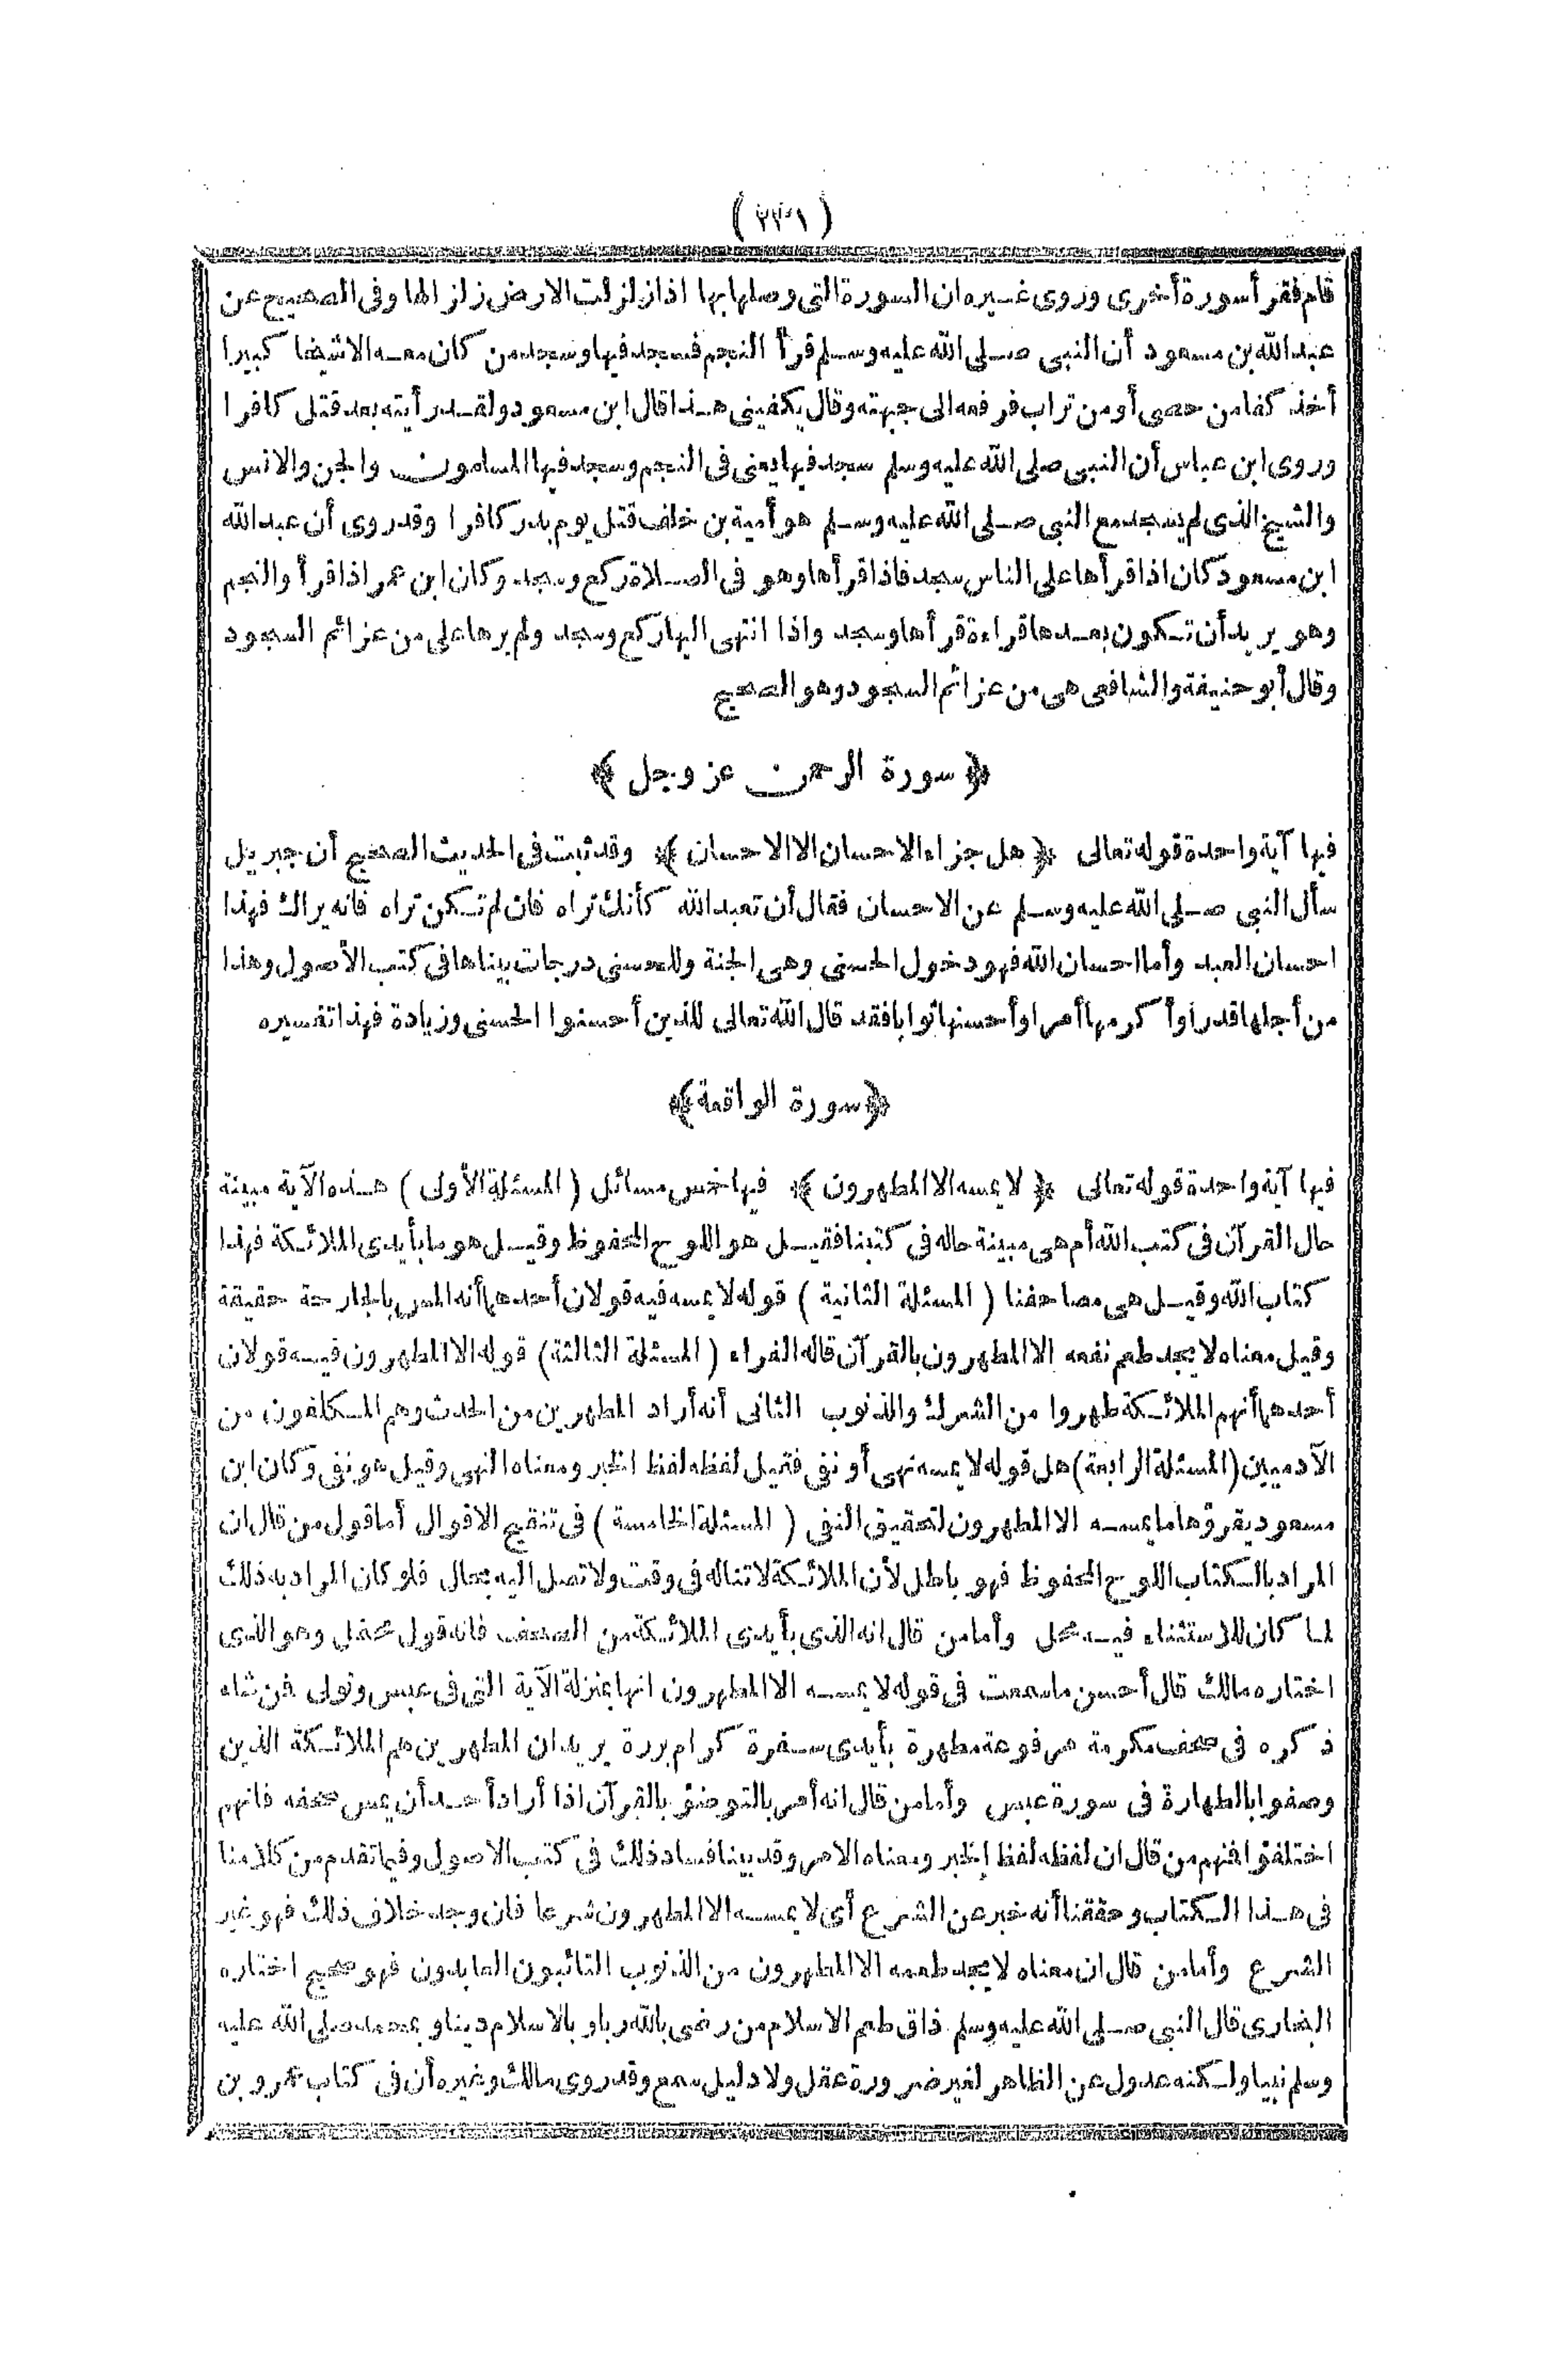 قام فقرأ سورة أخرى وروى غيره ان السورة التى وصلها بها اذا زلزلت الارض زلزالها وفى الصحيح عن
عبد الله بن مسعود أن النبى صلى الله عليه وسلم قرأ النجم فسجد فيها وسجد من كان معه الا شيخا كبيرا
أخذ كفا من حصى أو من تراب فرفعه الى جبهته وقال يكفينى هذا قال ابن مسعود ولقد رأيته بعد قتل كافرا
وروى ابن عباس أن النبى صلى الله عليه وسلم سجد فيها يعنى فى النجم وسجد فيها المسلمون والجن والانس
والشيخ الذى لم يسجد مع النبى صلى الله عليه وسلم هو أمية بن خلف قتل يوم بدر كافرا وقد روى أن عبد الله
ابن مسعود كان اذا قرأها على الناس سجد فاذا قرأها وهو فى الصلاة ركع وسجد وكان ابن عمر اذا قرأ والنجم
وهو يريد أن تكون بعدها قراءة قرأها وسجد واذا انتهى اليها ركع وسجد ولم يرها على من عزائم السجود
وقال أبو حنيفة والشافعى هى من عزائم السجود وهو الصحيح
﴿ سورة الرحمن عز وجل ﴾
فيها آية واحدة قوله تعالى ﴿ هل جزاء الاحسان الا الاحسان ﴾ وقد ثبت فى الحديث الصحيح أن جبريل
سأل النبى صلى الله عليه وسلم عن الاحسان فقال أن تعبد الله كأنك تراه فان لم تكن تراه فانه يراك فهذا
احسان العبد وأما احسان الله فهو دخول الحسنى وهى الجنة وللحسنى درجات بيناها فى كتب الأصول وهذا
من أجلها قدرا وأكرمها أمرا وأحسنها ثوابا فقد قال الله تعالى للذين أحسنوا الحسنى وزيادة فهذا تفسيره
﴿ سورة الواقعة ﴾
فيها آية واحدة قوله تعالى ﴿ لا يمسه الا المطهرون ﴾ فيها خمس مسائل ( المسئلة الأولى ) هذه الآية مبينة
حال القرآن فى كتب الله أم هى مبينة حاله فى كتبنا فقيل هو اللوح المحفوظ وقيل هو ما بأيدى الملائكة فهذا
كتاب الله وقيل هى مصاحفنا ( المسئلة الثانية ) قوله لا يمسه فيه قولان أحدهما أنه المس بالجارحة حقيقة
وقيل معناه لا يجد طعم نفعه الا المطهرون بالقرآن قاله الفراء ( المسئلة الثالثة ) قوله الا المطهرون فيه قولان
أحدهما أنهم الملائكة طهروا من الشرك والذنوب الثانى أنه أراد المطهرين من الحدث وهم المكلفون من
الآدميين ( المسئلة الرابعة ) هل قوله لا يمسه نهى أو نفى فقيل لفظه لفظ الخبر ومعناه النهى وقيل هو نفى وكان ابن
مسعود يقرؤها ما يمسه الا المطهرون لتحقيق النفى ( المسئلة الخامسة ) فى تنقيح الاقوال أما قول من قال ان
المراد بالكتاب اللوح المحفوظ فهو باطل لأن الملائكة لا تناله فى وقت ولا تصل اليه بحال فلو كان المراد به ذلك
لما كان للاستثناء فيه محل وأما من قال انه الذى بأيدى الملائكة من الصحف فانه قول محتمل وهو الذى
اختاره مالك قال أحسن ما سمعت فى قوله لا يمسه الا المطهرون انها بمنزلة الآية التى فى عبس وتولى فمن شاء
ذكره فى صحف مكرمة مرفوعة مطهرة بأيدى سفرة كرام بررة يريد ان المطهرين هم الملائكة الذين
وصفوا بالطهارة فى سورة عبس وأما من قال انه أمر بالتوضؤ بالقرآن اذا أراد أحد أن يمس صحفه فانهم
اختلفوا فمنهم من قال ان لفظه لفظ الخبر ومعناه الامر وقد بينا فساد ذلك فى كتب الاصول وفيما تقدم من كلامنا
فى هذا الكتاب وحققنا أنه خبر عن الشرع أى لا يمسه الا المطهرون شرعا فان وجد خلاف ذلك فهو غير
الشرع وأما من قال ان معناه لا يجد طعمه الا المطهرون من الذنوب التائبون العابدون فهو صحيح اختاره
البخارى قال النبى صلى الله عليه وسلم ذاق طعم الاسلام من رضى بالله ربا وبالاسلام دينا وبمحمد صلى الله عليه
وسلم نبيا ولكنه عدول عن الظاهر لغير ضرورة عقل ولا دليل سمع وقد روى مالك وغيره أن فى كتاب عمرو بن